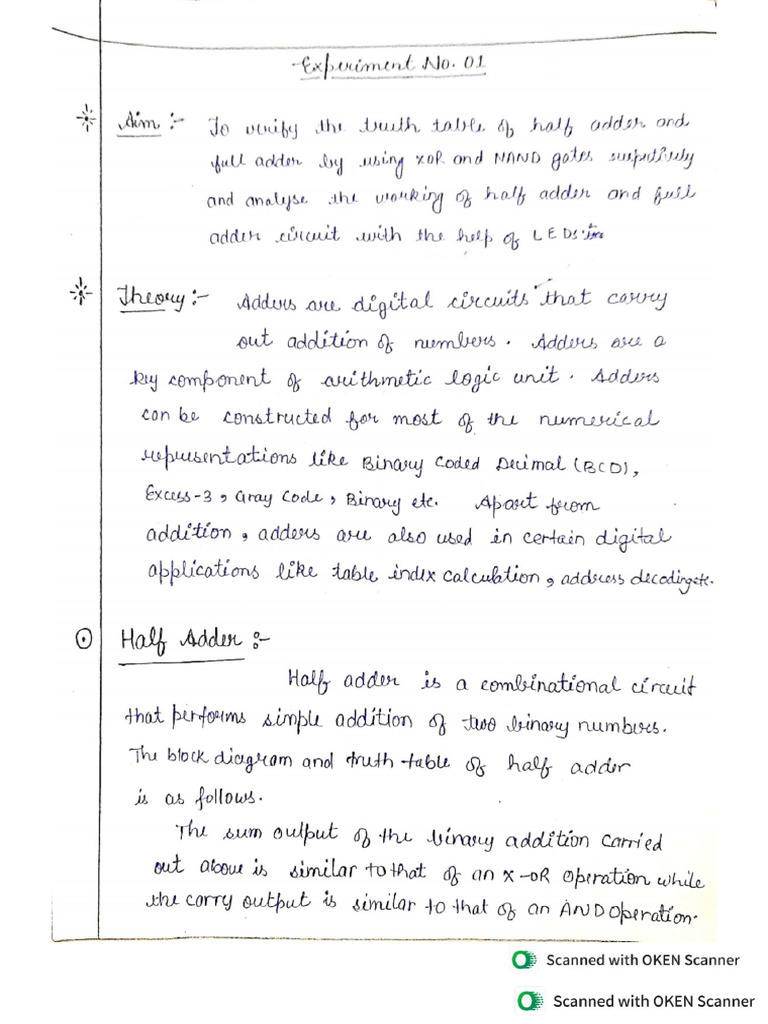 Experiment No. 01
Aim :- To verify the truth table of half adder and
full adder by using XOR and NAND gates respectively
and analyse the working of half adder and full
adder circuit with the help of LEDs
Theory :- Adders are digital circuits that carry
out addition of numbers. Adders are a
key component of arithmetic logic unit. Adders
can be constructed for most of the numerical
representations like Binary Coded Decimal (BCD),
Excess-3, Gray Code, Binary etc. Apart from
addition, adders are also used in certain digital
applications like table index calculation, address decoding etc.
Half Adder :-
Half adder is a combinational circuit
that performs simple addition of two binary numbers.
The block diagram and truth table of half adder
is as follows.
The sum output of the binary addition carried
out above is similar to that of an X-OR operation while
the carry output is similar to that of an AND operation.
Scanned with OKEN Scanner
Scanned with OKEN Scanner